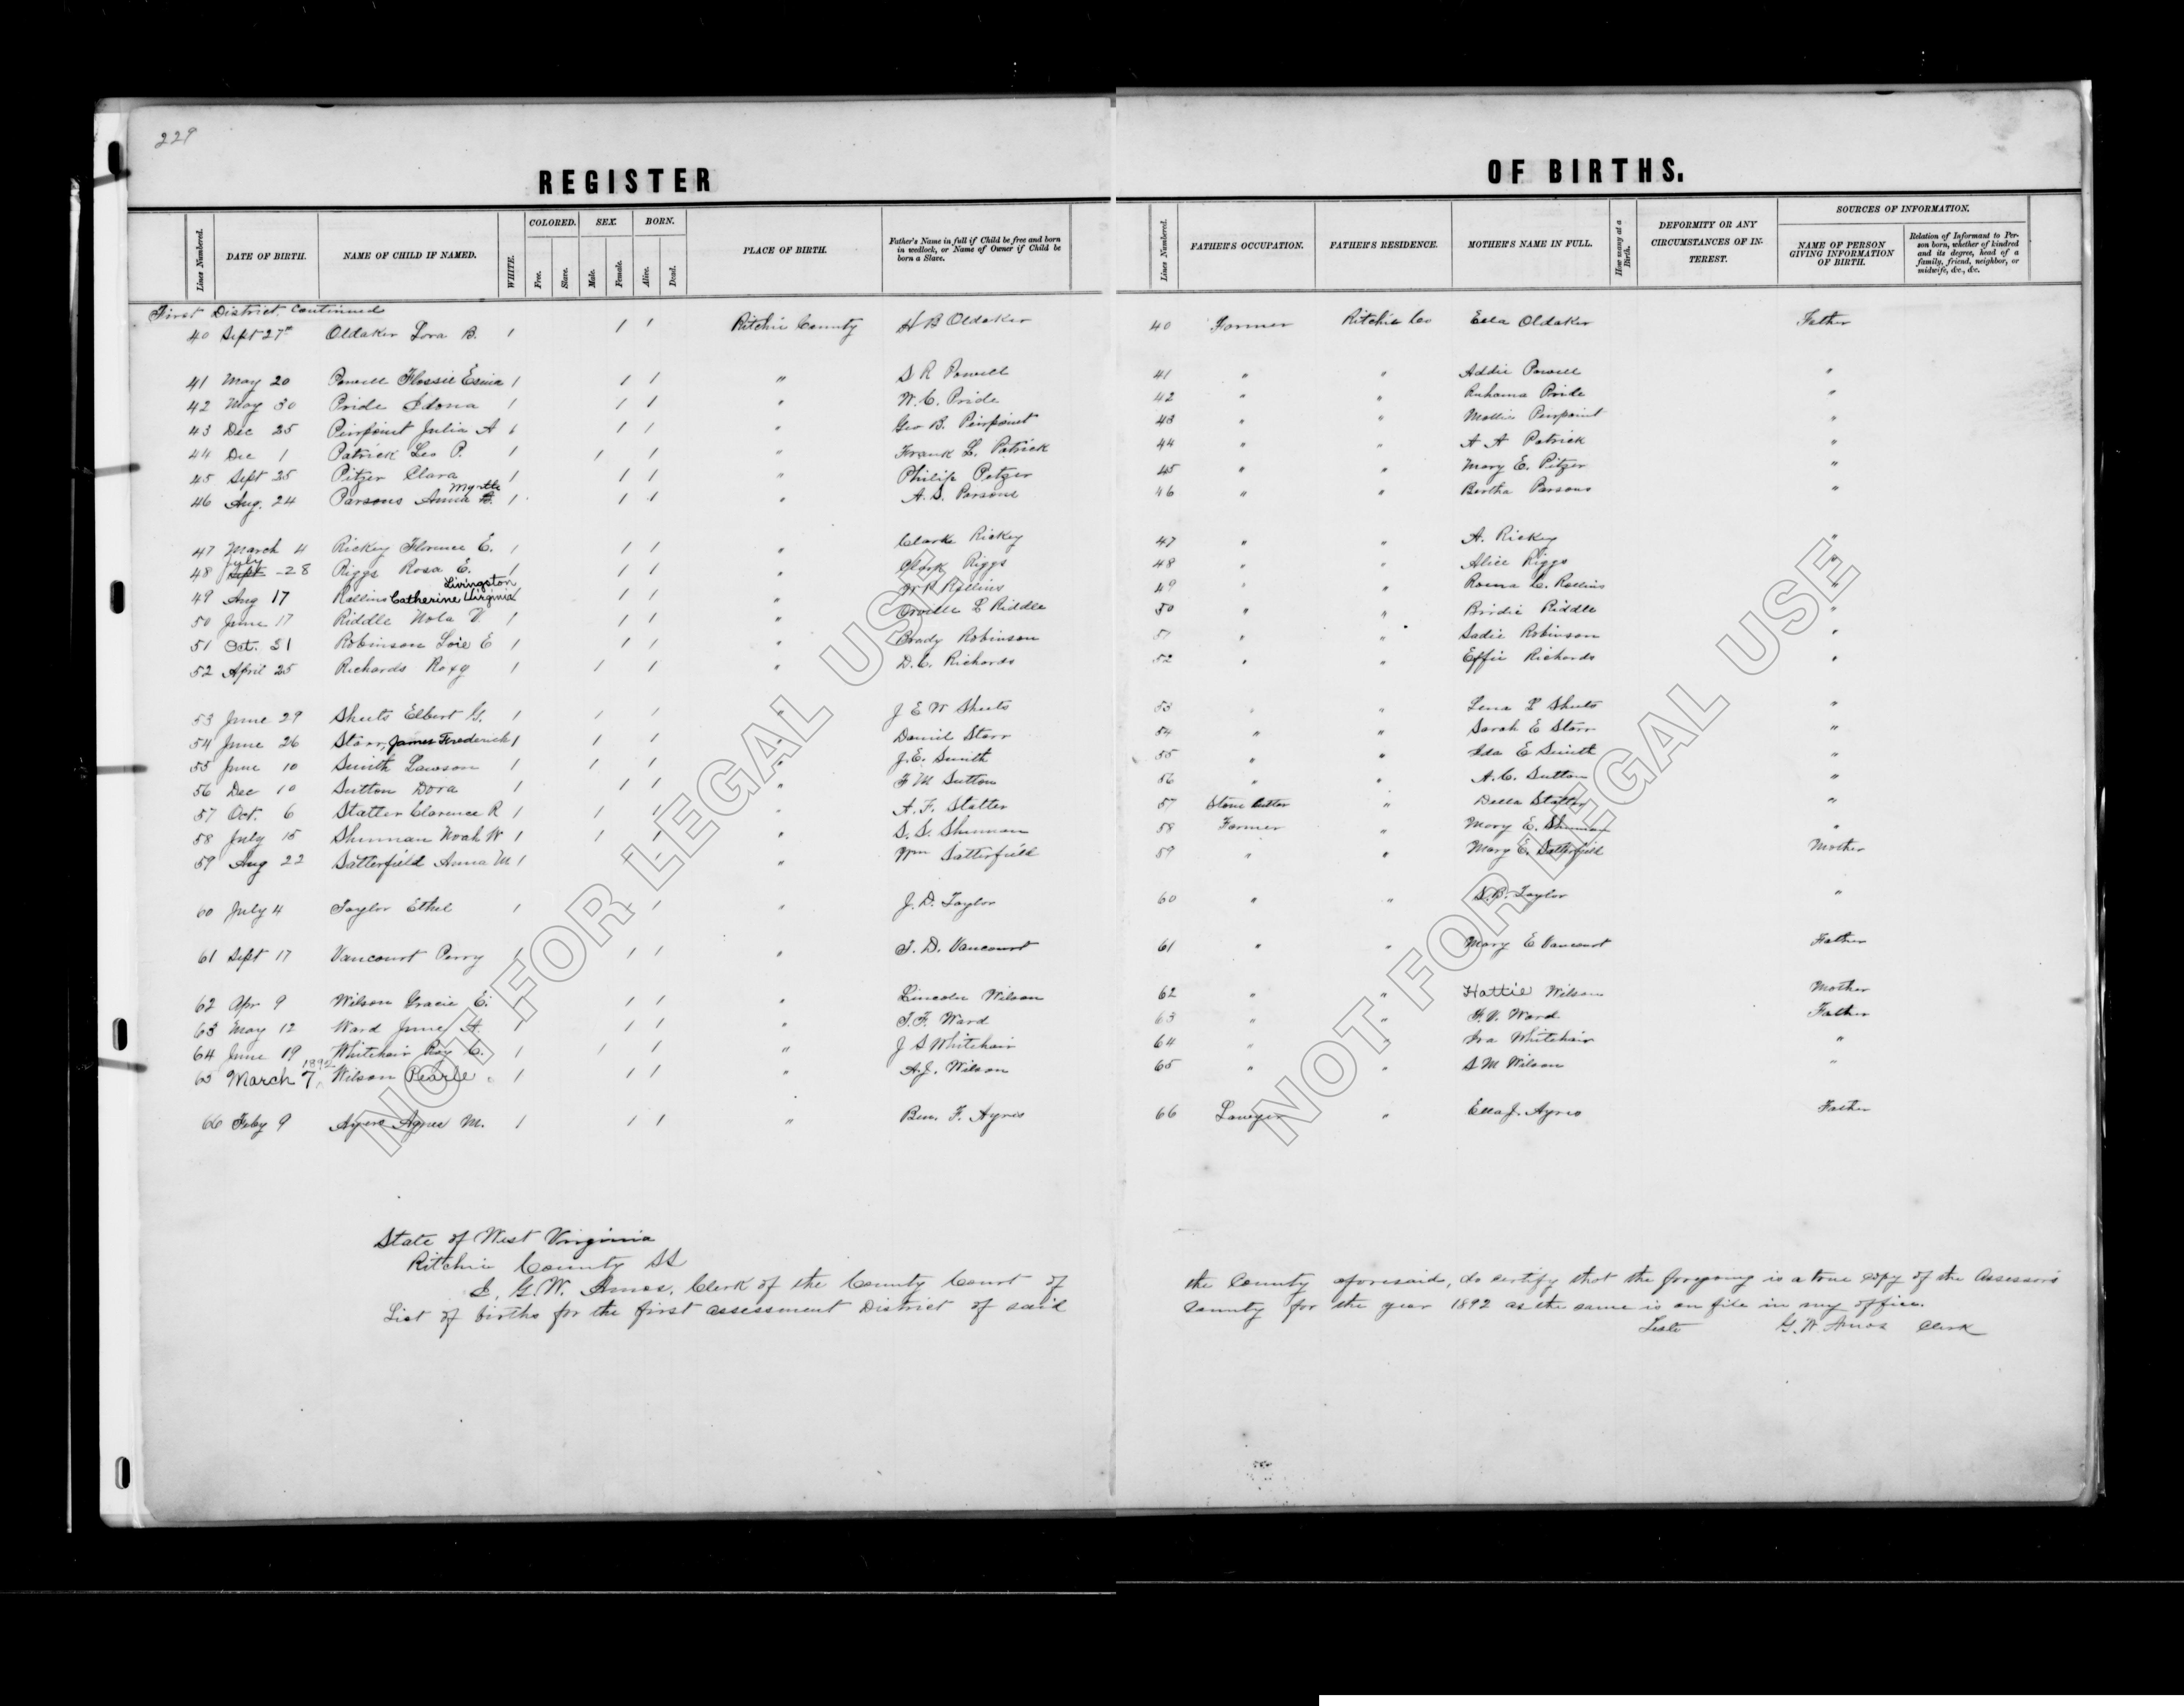 229
REGISTER OF BIRTHS.
Lines Numbered. DATE OF BIRTH. NAME OF CHILD IF NAMED. WHITE. COLORED. Free. Slave. SEX. Male. Female. BORN. Alive. Dead. PLACE OF BIRTH. Father's Name in full if Child be free and born in wedlock, or Name of Owner if Child be born a Slave. Lines Numbered. FATHER'S OCCUPATION. FATHER'S RESIDENCE. MOTHER'S NAME IN FULL. How many at a Birth. DEFORMITY OR ANY CIRCUMSTANCES OF INTEREST. SOURCES OF INFORMATION. NAME OF PERSON GIVING INFORMATION OF BIRTH. Relation of Informant to Person born, whether of kindred and its degree, head of a family, friend, neighbor, or midwife, &c., &c.
First District Continued
40 Sept 27 Oldaker Lora B. 1 1 1 Ritchie County H B Oldaker 40 Farmer Ritchie Co Ella Oldaker Father
41 May 20 Powell Flossie 1 1 1 " S R Powell 41 " " Addie Powell "
42 May 30 Pride Idona 1 1 1 " W. C. Pride 42 " " Ruhama Pride "
43 Dec 25 Peirpoint Julia A 1 1 1 " Geo B. Peirpoint 43 " " Mollie Peirpoint "
44 Dec 1 Patrick Leo P. 1 1 1 " Frank L. Patrick 44 " " A A Patrick "
45 Sept 25 Pitzer Clara 1 1 1 " Philip Petzer 45 " " Mary E. Pitzer "
46 Aug. 24 Parsons Anna Myrtle 1 1 1 " A. S. Parsons 46 " " Bertha Parsons "
47 March 4 Rickey Florence E. 1 1 1 " Clark Rickey 47 " " A. Rickey "
48 July Sept 28 Riggs Rosa E. 1 1 1 " Clark Riggs 48 " " Alice Riggs "
49 Aug 17 Rollins Catherine Livingston Virginia 1 1 1 " W R Rollins 49 " " Roma C. Rollins "
50 June 17 Riddle Nola V. 1 1 1 " Orville L Riddle 50 " " Birdie Riddle "
51 Oct. 21 Robinson Loie E 1 1 1 " Brady Robinson 51 " " Sadie Robinson "
52 April 25 Richards Roxy 1 1 1 " D. C. Richards 52 " " Effie Richards "
53 June 29 Sheets Elbert G. 1 1 1 " J E W Sheets 53 " " Lena L Sheets "
54 June 26 Starr, James Frederick 1 1 1 " Daniel Starr 54 " " Sarah E Starr "
55 June 10 Smith Lawson 1 1 1 " J. E. Smith 55 " " Ida E Smith "
56 Dec 10 Sutton Dora 1 1 1 " F M Sutton 56 " " A. C. Sutton "
57 Oct. 6 Statler Clarence R 1 1 1 " A. F. Statler 57 Stone Cutter " Della Statler "
58 July 15 Shuman Noah W 1 1 1 " S. S. Shuman 58 Farmer " Mary E. Shuman "
59 Aug 22 Satterfield Anna M 1 1 1 " Wm Satterfield 59 " " Mary E. Satterfield Mother
60 July 4 Taylor Ethel 1 1 1 " J. D. Taylor 60 " " S. B. Taylor "
61 Sept 17 Vancourt Perry 1 1 1 " S. D. Vancourt 61 " " Mary E Vancourt Father
62 Apr 9 Wilson Gracie E. 1 1 1 " Lincoln Wilson 62 " " Hattie Wilson Mother
63 May 12 Ward June A. 1 1 1 " S. F. Ward 63 " " F. V. Ward Father
64 June 19 Whitehair Ray C. 1 1 1 " J S Whitehair 64 " " Iva Whitehair "
65 March 7, 1892 Wilson Pearle 1 1 1 " A. J. Wilson 65 " " S M Wilson "
66 Feby 9 Ayers Agnes M. 1 1 1 " Ben. F. Ayres 66 Lawyer " Ella J. Ayres Father
State of West Virginia
Ritchie County SS
I, G. W. Amos, Clerk of the County Court of the County aforesaid, do certify that the foregoing is a true copy of the Assessors
List of births for the first assessment District of said County for the year 1892 as the same is on file in my office.
Teste G. W. Amos Clerk
NOT FOR LEGAL USE
NOT FOR LEGAL USE